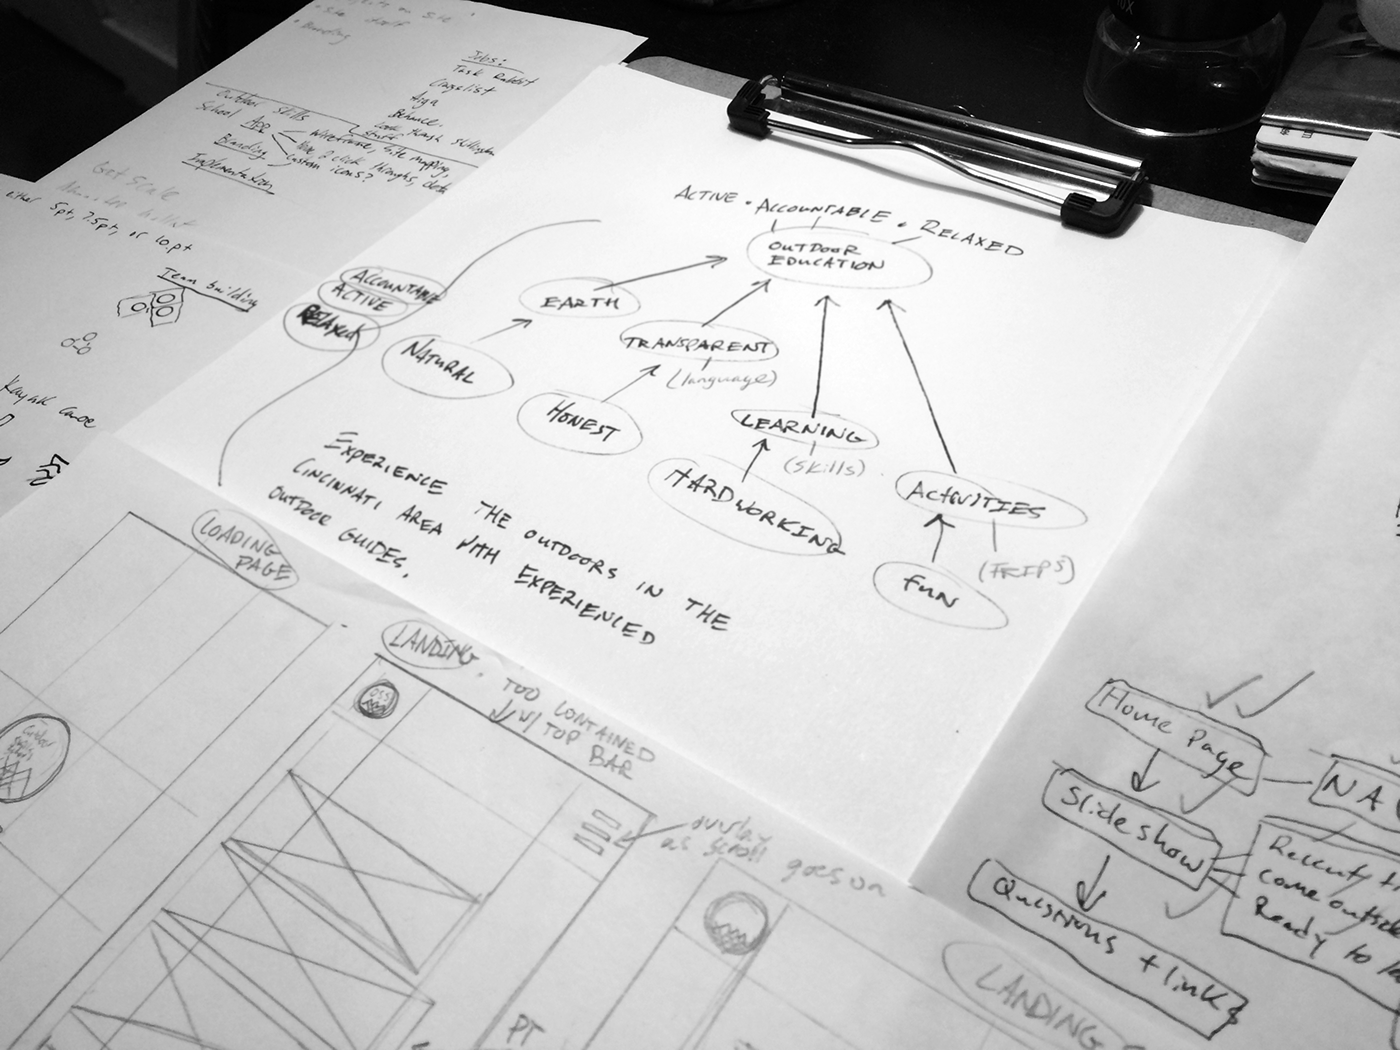 Jobs:
Task Rabbit
Aiga
Outdoor skills
School App
Branding
Implementation
wireframe, site mapping,
custom icons?
Get Scale
either 5pt, 7.5pt, or 10pt
Team building
Kayak canoe
ACTIVE • ACCOUNTABLE • RELAXED
OUTDOOR
EDUCATION
ACCOUNTABLE
ACTIVE
RELAXED
EARTH
NATURAL
TRANSPARENT
(language)
HONEST
LEARNING
(skills)
HARDWORKING
ACTIVITIES
(TRIPS)
FUN
EXPERIENCE THE OUTDOORS IN THE
CINCINNATI AREA WITH EXPERIENCED
OUTDOOR GUIDES.
LOADING
PAGE
LANDING
TOO CONTAINED
W/ TOP BAR
OSS
overlay
as scroll
goes on
LANDING
PT
Home Page
NA
Slide show
Questions + links
Recently
come outside
Ready to